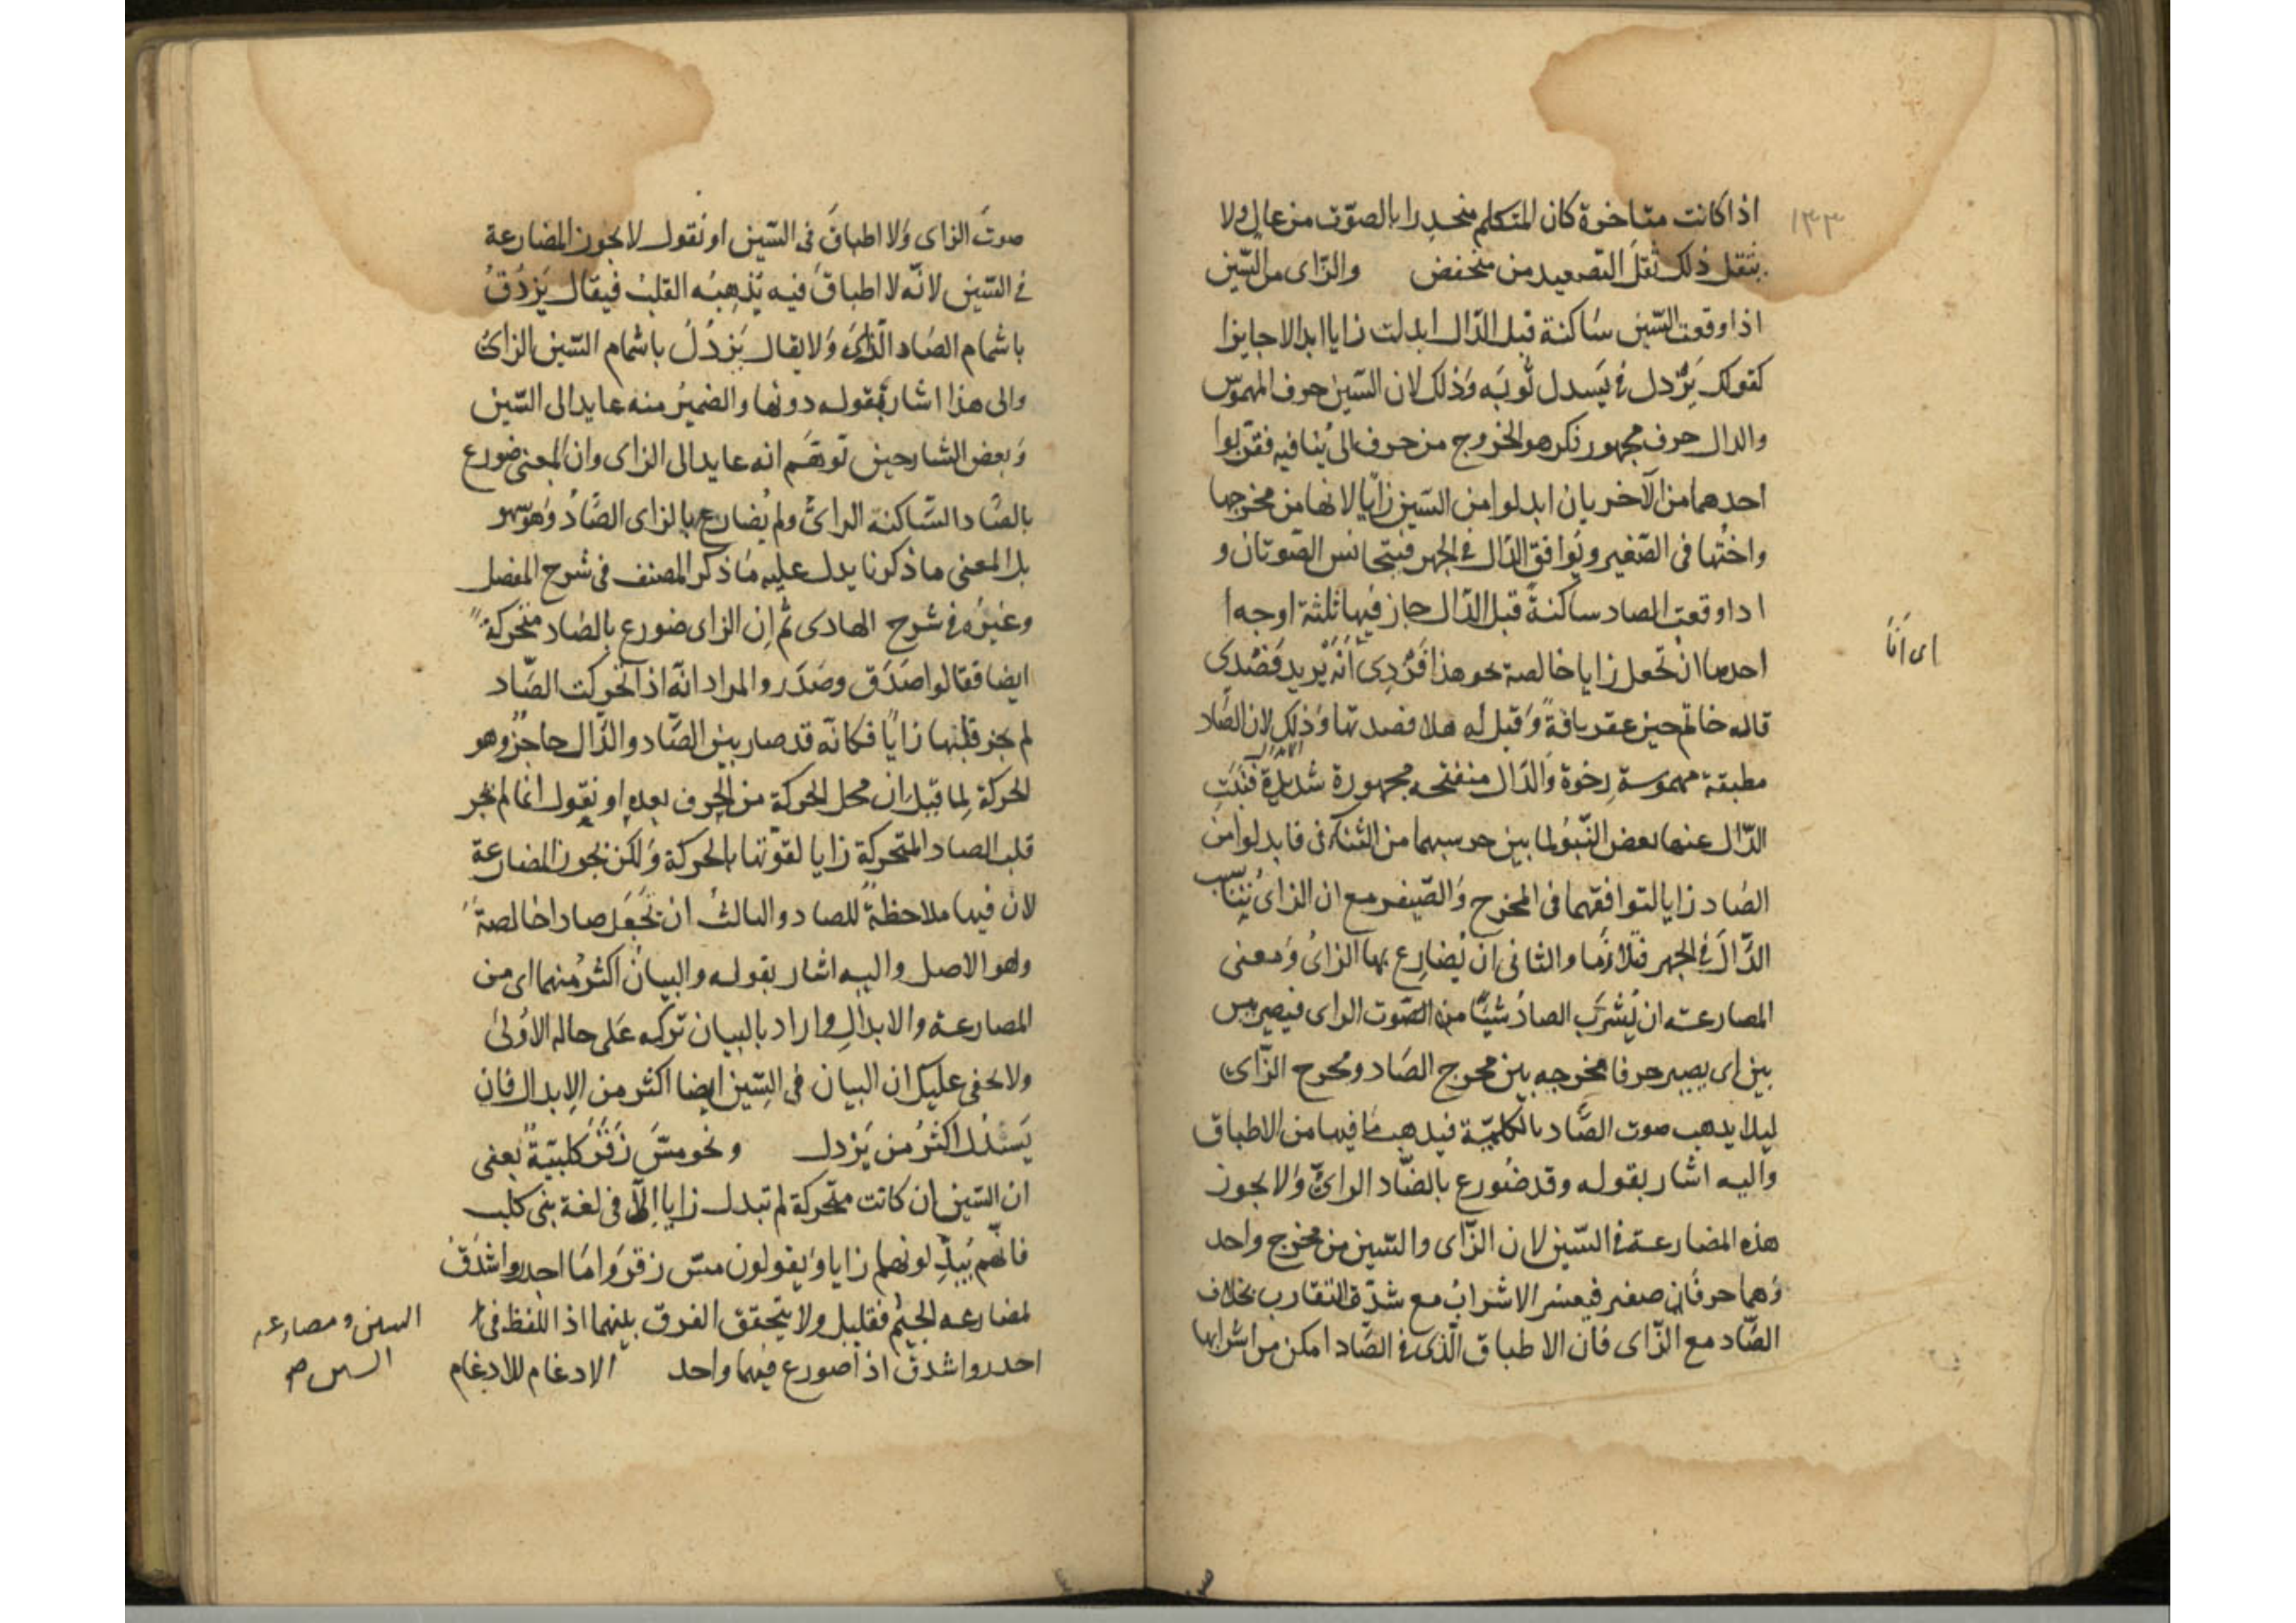 ١٣٣
اذا كانت متاخرة كان المتكلم منحدرا بالصوت من عال ولا
يثقل ذلك ثقل التصعيد من منخفض والزاى من السين
اذا وقعت السين ساكنة قبل الدال ابدلت زايا ابدالا جايزا
كقولك يزدل فى يسدل ثوبه وذلك لان السين حرف المهموس
والدال حرف مجهور فكرهو الخروج من حرف الى ينافيه فقربوا
احدهما من الآخر بان ابدلوا من السين زايا لانها من مخرجها
واختها فى الصفير ويوافق الدال فى الجهر فيتجانس الصوتان و
اذا وقعت الصاد ساكنة قبل الدال جاز فيها ثلثة اوجه ا
احدها ان تجعل زايا خالصة نحو هذا فزدى أنه يريد فصدى
اى أنا
قاله حاتم حين عقر ناقة وقيل له هلا فصدتها وذلك لان الصاد
مطبقة مهموسة رخوة والدال منفتحه مجهورة شديدة فنبت
الدال عنها بعض النبو لما بين جرسيهما من التنافى فابدلوا من
الصاد زايا لتوافقهما فى المخرج والصفير مع ان الزاى يناسب
الدال فى الجهر فتلازما والثانى ان يضارع بها الزاى ومعنى
المضارعة ان يشرب الصاد شيئا من الصوت الزاى فيصير بين
بين اى يصير حرفا مخرجه بين مخرج الصاد ومخرج الزاى
ليلا يذهب صوت الصاد بالكلية فيذهب ما فيها من الاطباق
واليه اشار بقوله وقد ضورع بالصاد الزاى ولا يجوز
هذه المضارعة فى السين لان الزاى والسين من مخرج واحد
وهما حرفان صفير فيعسر الاشراب مع شدة التقارب بخلاف
الصاد مع الزاى فان الاطباق الذى فى الصاد امكن من اشرابها
صوت الزاى ولا اطباق فى السين او نقول لا يجوز المضارعة
فى السين لانه لا اطباق فيه يذهبه القلب فيقال يزدق
باشمام الصاد الزاى ولا يقال يزدل باشمام السين الزاى
والى هذا اشار بقوله دونها والضمير منه عايد الى السين
وبعض الشارحين توهم انه عايد الى الزاى وان المعنى ضورع
بالصاد الساكنة الزاى ولم يضارع بالزاى الصاد وهو سهو
بل المعنى ما ذكرنا يدل عليه ما ذكر المصنف فى شرح المفصل
وغيره فى شرح الهادى ثم ان الزاى ضورع بالصاد متحركة
ايضا فقالوا صدق وصدر والمراد انه اذا تحركت الصاد
لم يجز قلبها زايا فكانه قد صار بين الصاد والدال حاجز وهو
الحركة لما قيل ان محل الحركة من الحرف بعده او نقول انما لم يجز
قلب الصاد المتحركة زايا لقوتها بالحركة ولكن يجوز المضارعة
لان فيها ملاحظة للصاد والثالث ان تجعل صادا خالصة
وهو الاصل واليه اشار بقوله والبيان اكثر منهما اى من
المضارعة والابدال واراد بالبيان تركه على حاله الاولى
ولا يخفى عليك ان البيان فى السين ايضا اكثر من الابدال فان
يسدل اكثر من يزدل ونحو مس زقر كلبية يعنى
ان السين ان كانت متحركة لم تبدل زايا الا فى لغة بنى كلب
فانهم يبدلونها زايا ويقولون مس زقر واما اجدر واشدق
لمضارعه الجيم فقليل ولا يتحقق الفرق بينهما اذ اللفظ فى
السين ومضارعه
السين صح
اجدر واشدق اذا ضورع فيهما واحد الادغام للادغام